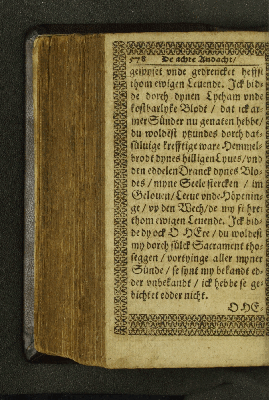 578 De achte Andacht/
gespyset vnde gedrencket hefft
thom ewigen Leuende. Ick bid-
de dorch dynen Lycham vnde
kostbarlyke Blodt / dat ick ar-
mer Sünder nu genaten hebbe/
du woldest ytzundes dorch dat-
süluige krefftige ware Hemmel-
brodt dynes hilligen Lyues/vnd
den eddelen Dranck dynes Blo-
des / myne Seele stercken / im
Gelouen/Leeue vnde Höpenin-
ge / vp den Wech/de my fi hret
thom ewigen Leuende. Ick bid-
de dy ock O HEre / du woldest
my dorch sülck Sacrament tho-
seggen / vortyinge aller myner
Sünde / se synt my bekandt ed-
der vnbekandt / ick hebbe se ge-
bichtet edder nicht.
O HE-